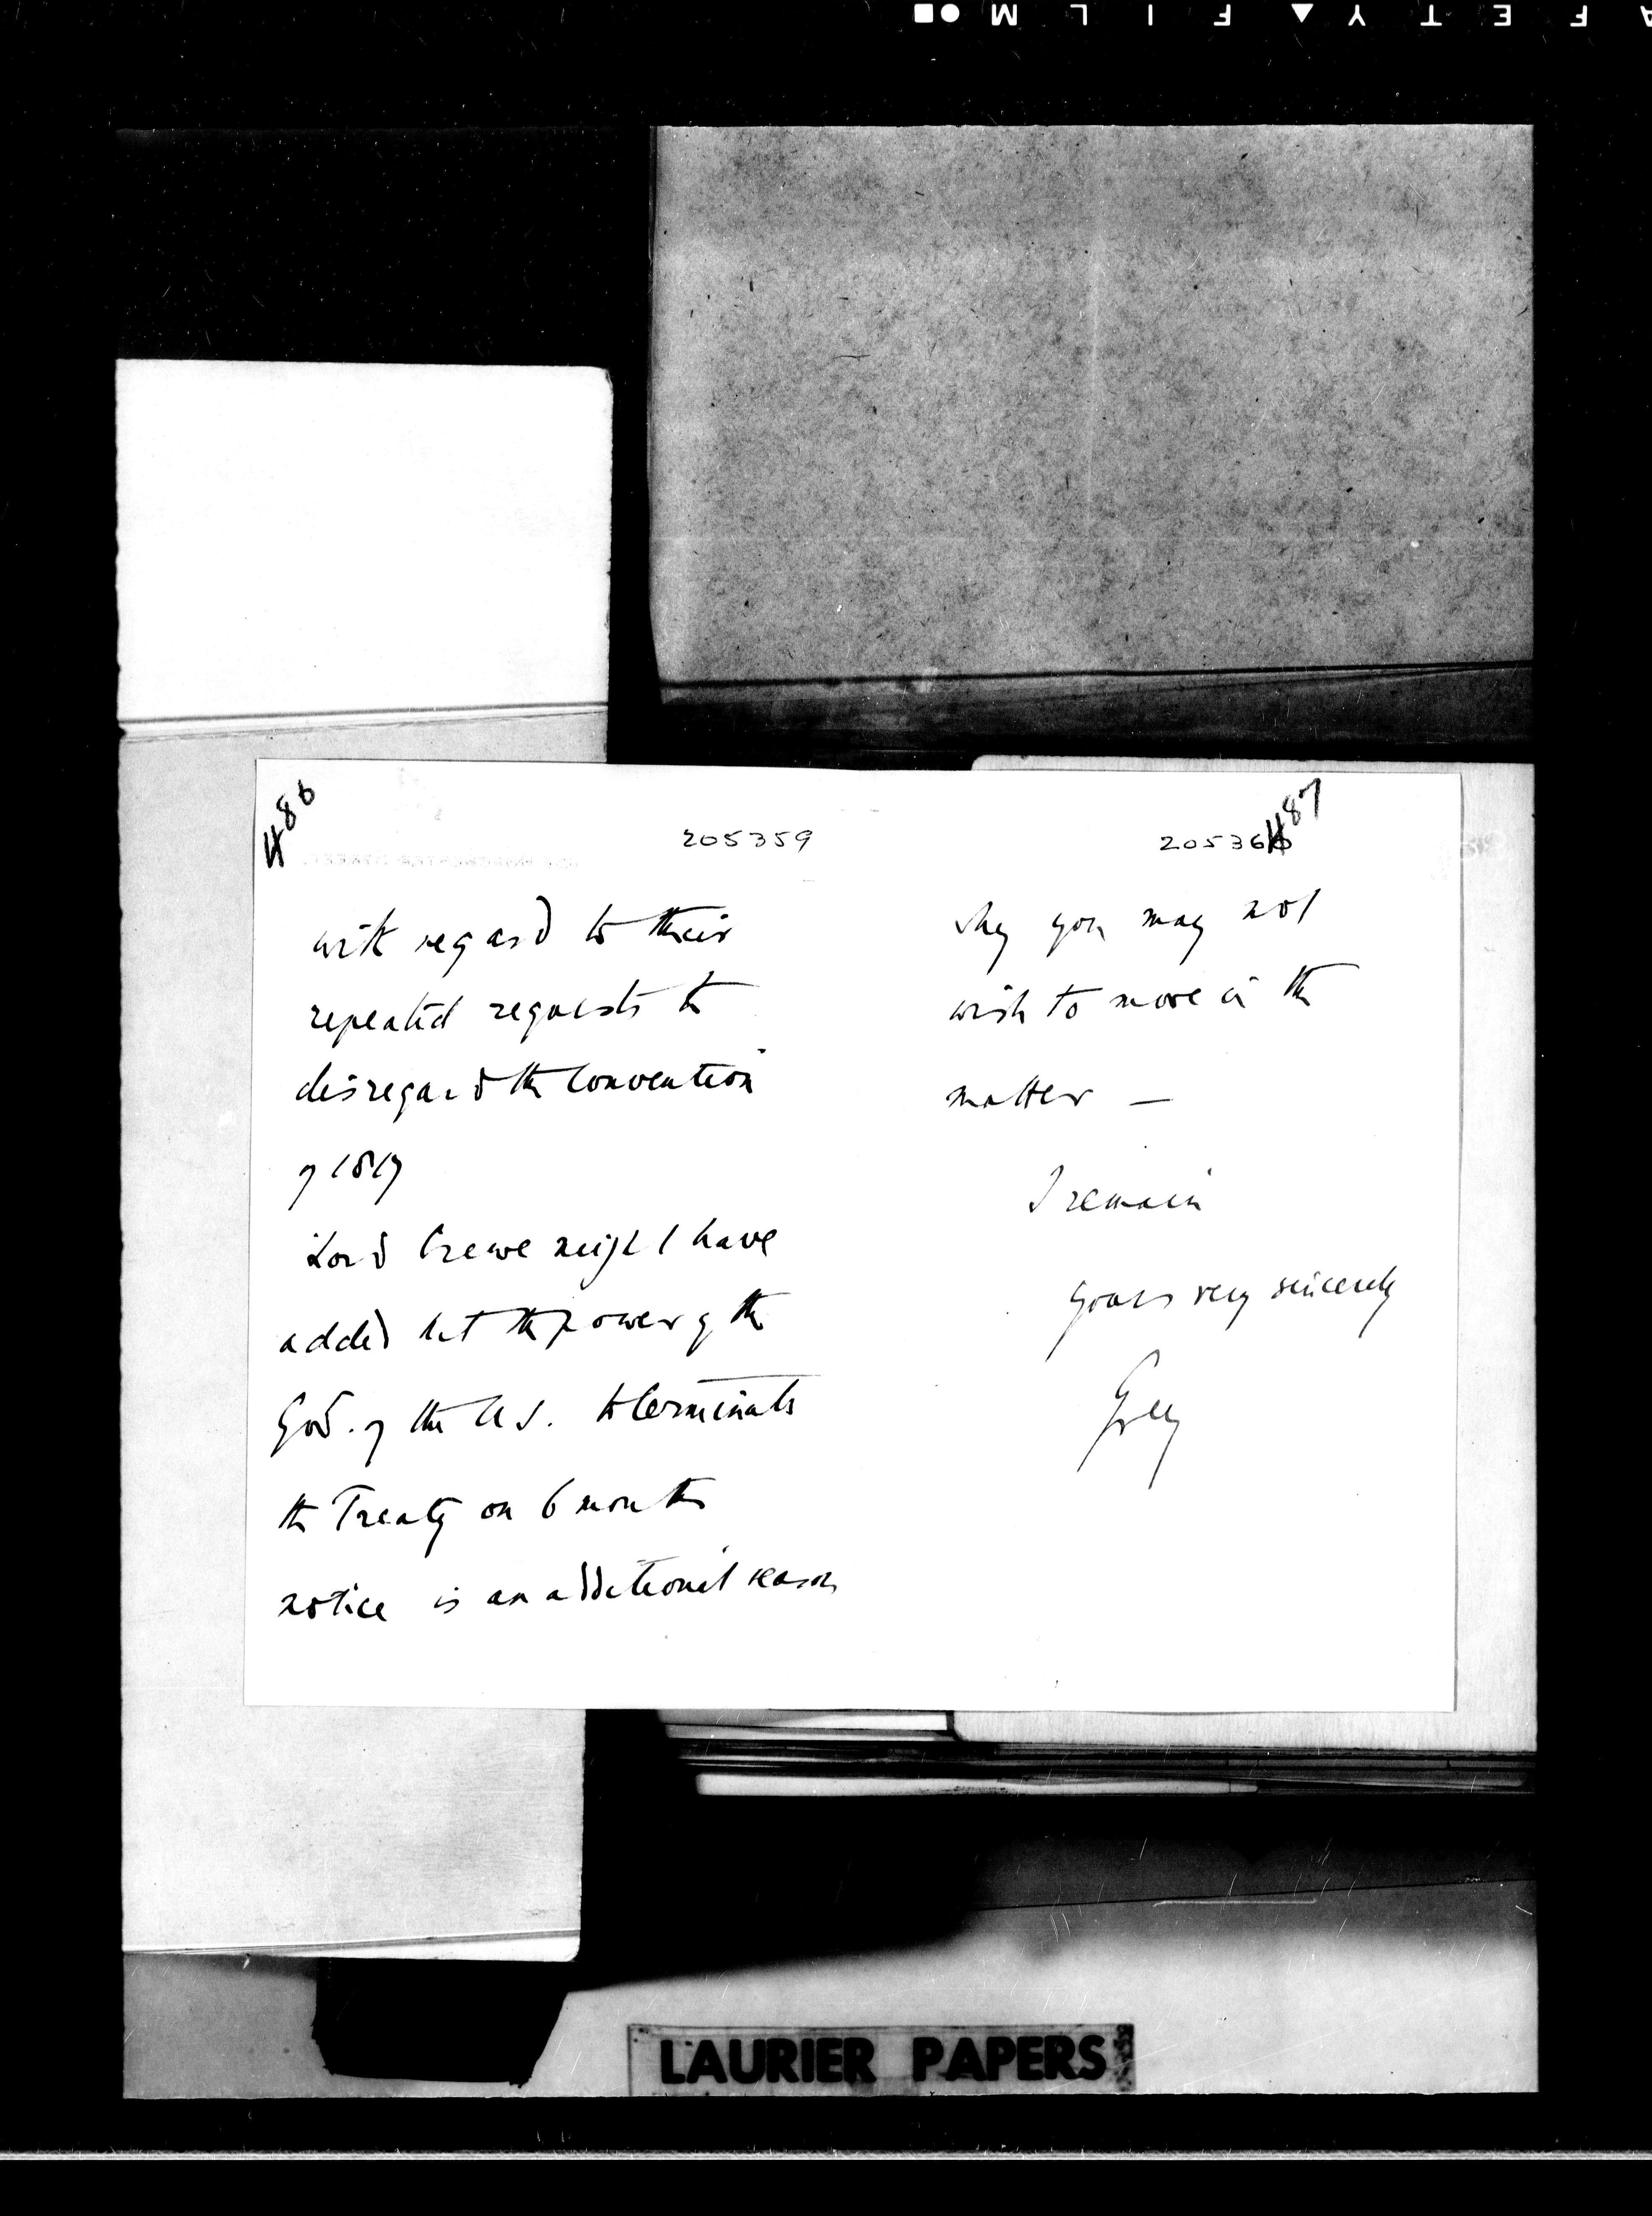 SAFETY▲FILM●■
486
205359
with regard to their
repeated requests to
disregard the Convention
of 1817
Lord Crewe might have
added that the power of the
Gov. of the U.S. to terminate
the Treaty on 6 months
notice is an additional reason
205360
487
why you may not
wish to move in the
matter —
I remain
yours very sincerely
Grey
LAURIER PAPERS